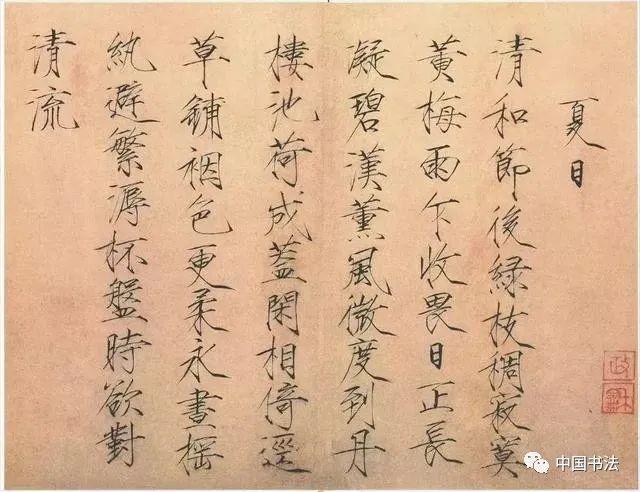 夏日
清和節後緑枝稠寂寞
黃梅雨乍收畏日正長
凝碧漢薰風微度到丹
樓池荷成蓋閑相倚逕
草鋪裀色更柔永晝搖
紈避繁溽杯盤時欲對
清流
中国书法